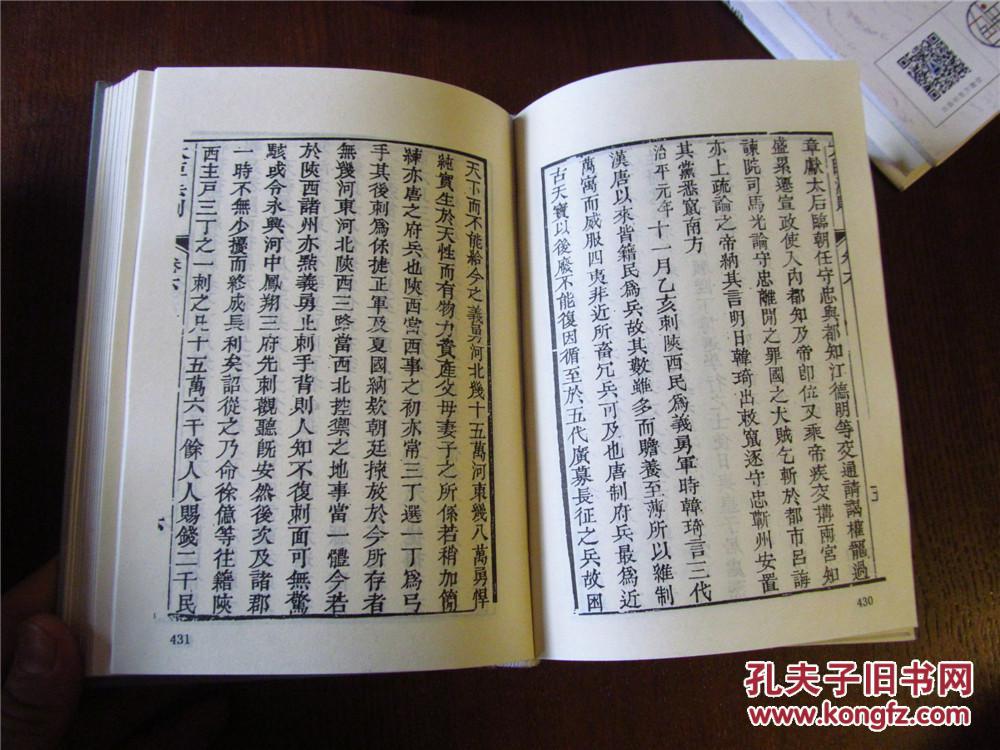 章獻太后臨朝任守忠與都知江德明等交通請謁權寵過
盛累遷宣政使入內都知及帝卽位又乘帝疾交搆兩宮知
諫院司馬光論守忠離閒之罪國之大賊乞斬於都市呂誨
亦上疏論之帝納其言明日韓琦出敕竄逐守忠蘄州安置
其黨悉竄南方
治平元年十一月乙亥刺陝西民爲義勇軍時韓琦言三代
漢唐以來皆籍民爲兵故其數雖多而贍養至薄所以維制
萬寓而威服四夷非近所畜冗兵可及也唐制府兵最爲近
古天寶以後廢不能復因循至於五代廣募長征之兵故困
五
430
天下而不能給今之義勇河北幾十五萬河東幾八萬勇悍
純實生於天性而有物力資產父母妻子之所係若稍加簡
練亦唐之府兵也陝西當西事之初亦常三丁選一丁爲弓
手其後刺爲保捷正軍及夏國納欵朝廷揀放於今所存者
無幾河東河北陝西三路當西北控禦之地事當一體今若
於陝西諸州亦㸃義勇止刺手背則人知不復刺面可無驚
駭或令永興河中鳳翔三府先刺觀聽旣安然後次及諸郡
一時不無少擾而終成長利矣詔從之乃命徐億等往籍陝
西主戶三丁之一刺之凡十五萬六千餘人人賜錢二千民
卷六
六
431
孔夫子旧书网
www.kongfz.com